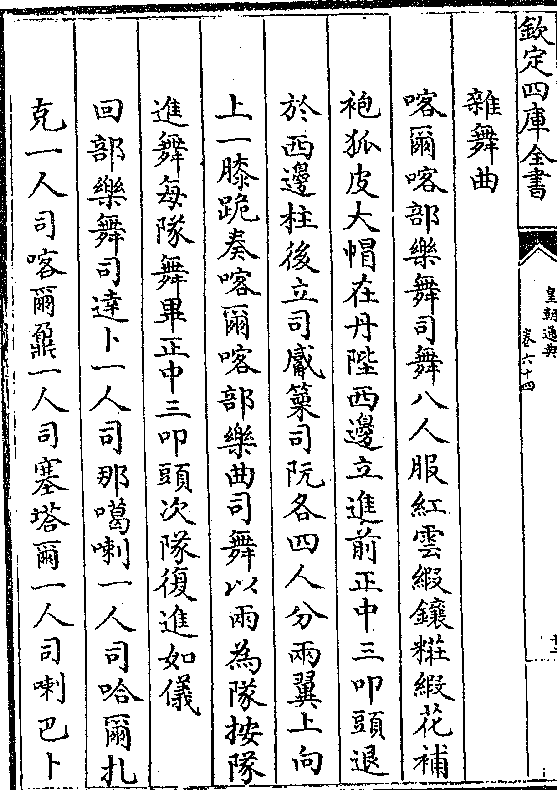 欽定四庫全書
皇朝通典
卷六十四
雜舞曲
喀爾喀部樂舞司舞八人服紅雲緞鑲粧緞花補
袍狐皮大帽在丹陛西邊立進前正中三叩頭退
於西邊柱後立司觱篥司阮各四人分兩翼上向
上一膝跪奏喀爾喀部樂曲司舞以兩為隊按隊
進舞每隊舞畢正中三叩頭次隊復進如儀
回部樂舞司達卜一人司那噶喇一人司哈爾扎
克一人司喀爾鼐一人司塞塔爾一人司喇巴卜